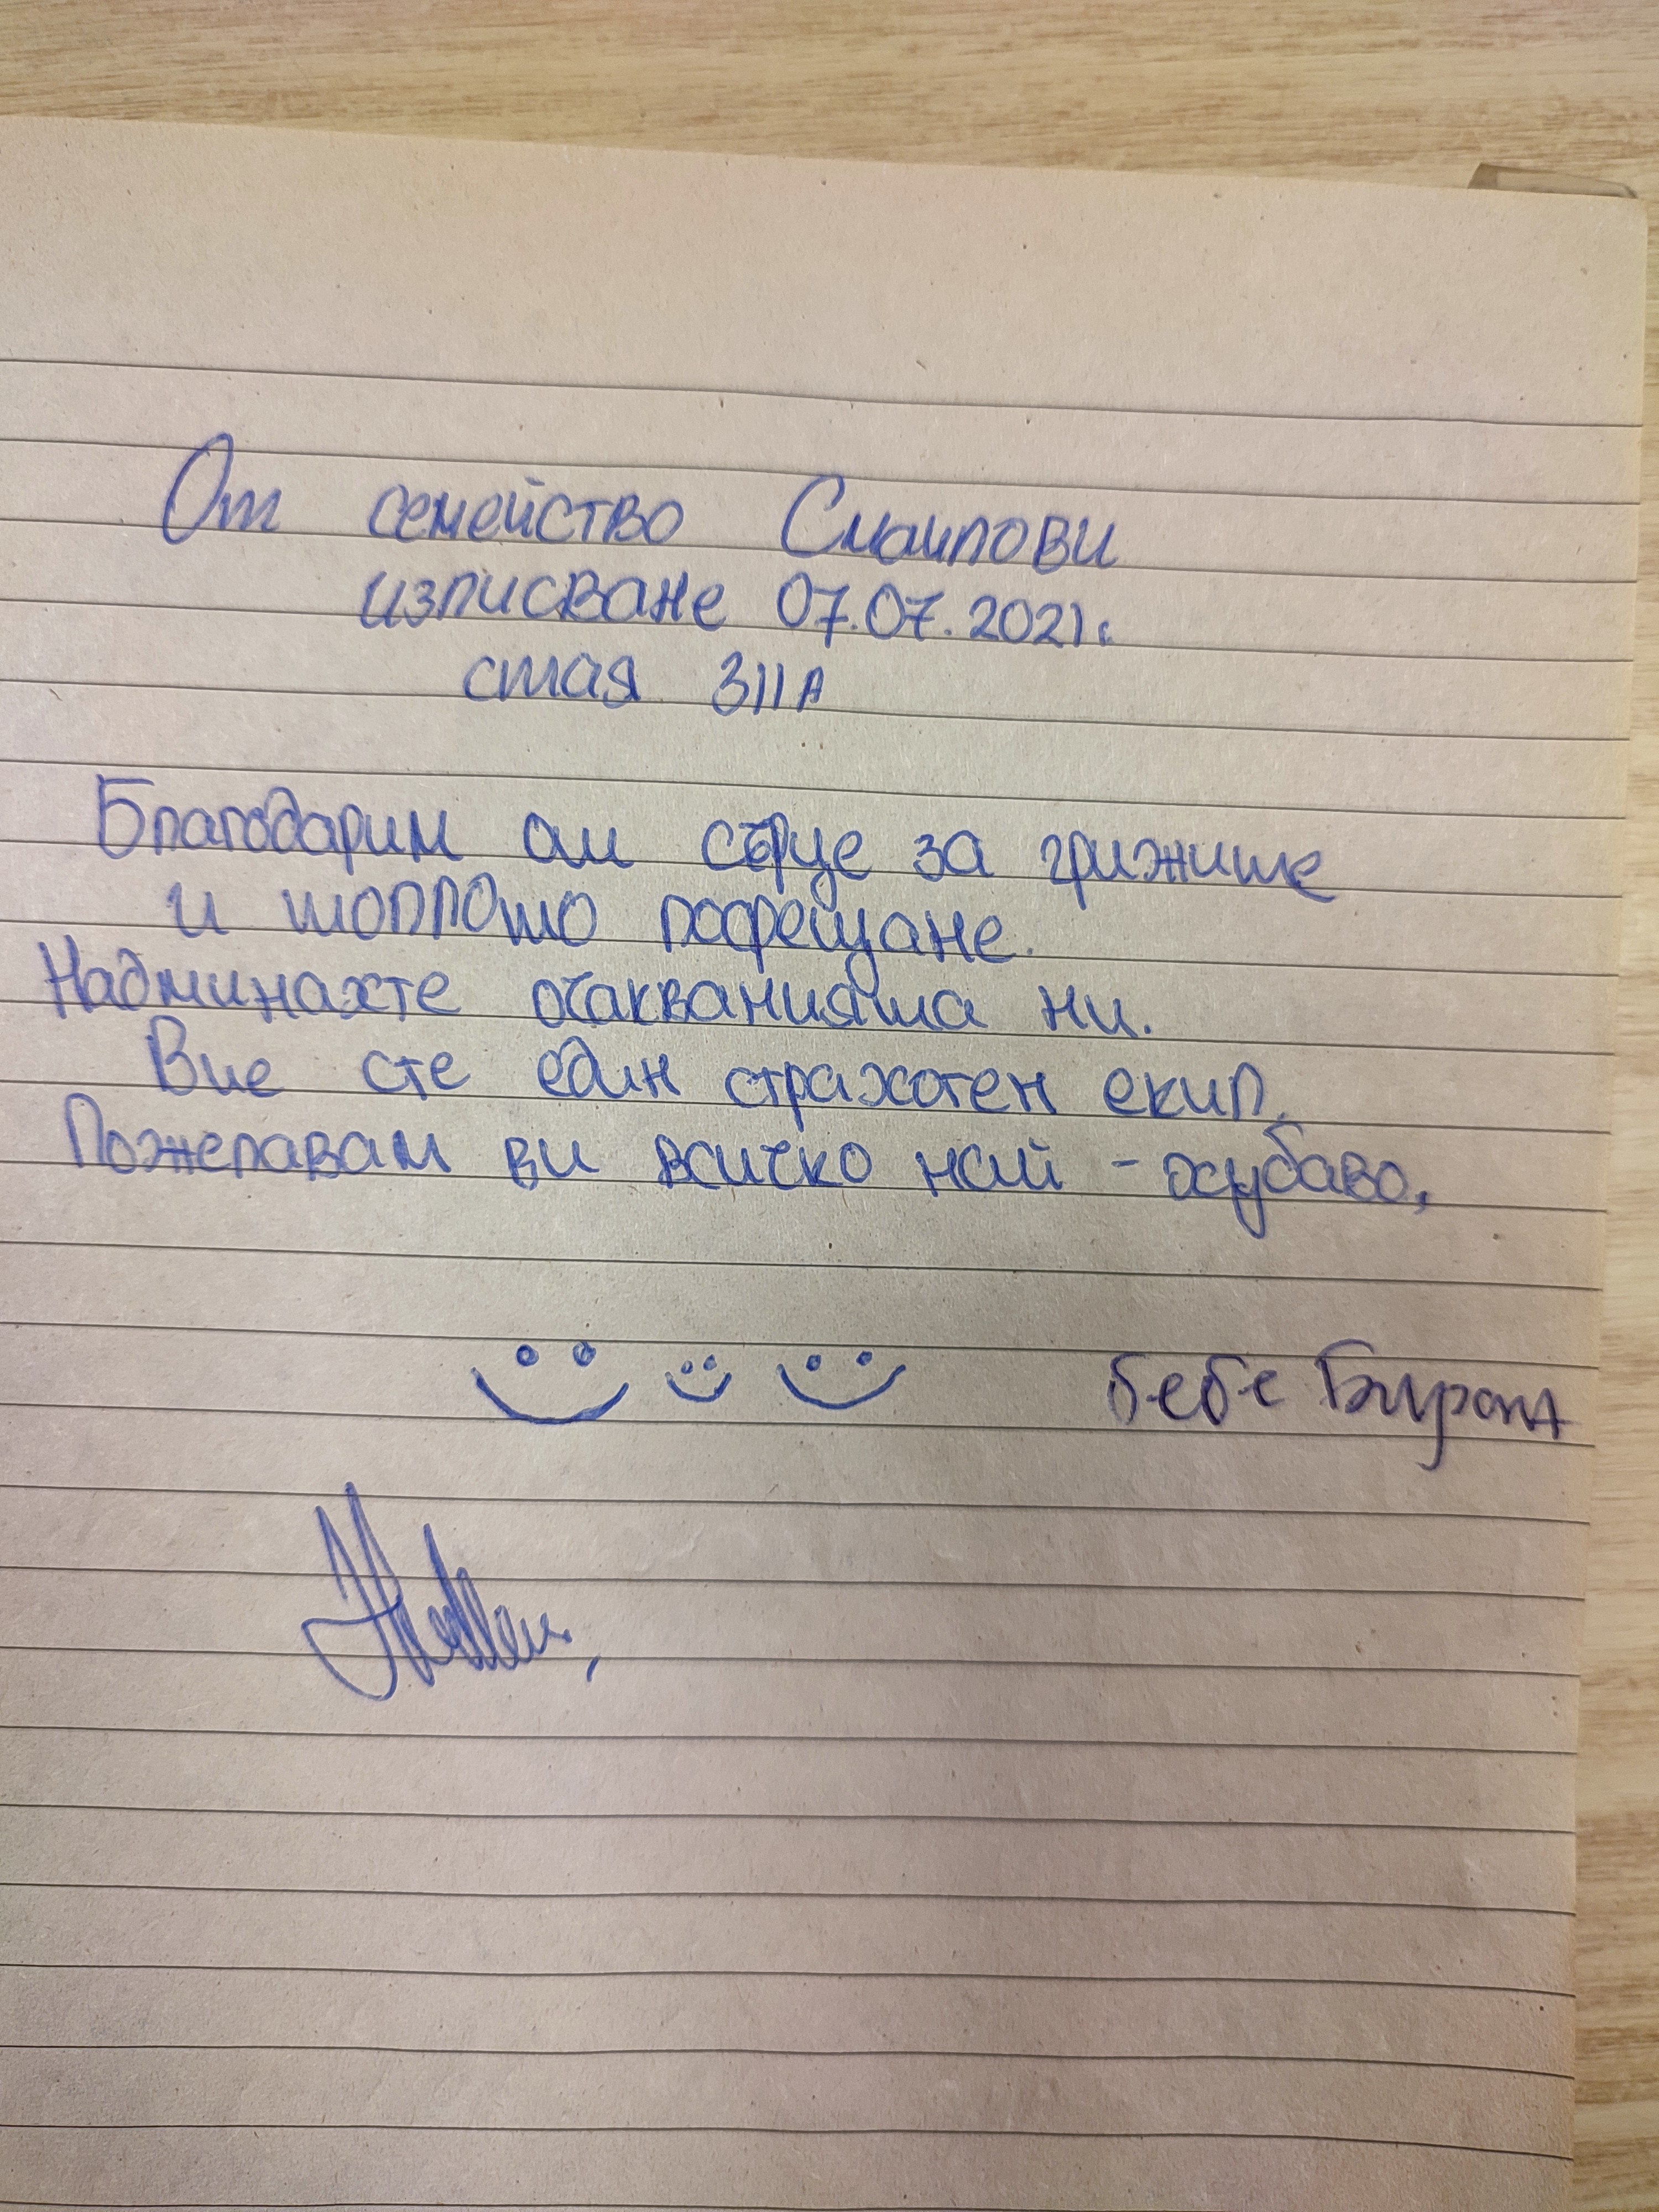 От семейство Смаилови
изписване 07.07.2021г.
стая 311А
Благодарим от сърце за грижите
и топлото посрещане.
Надминахте очакванията ни.
Вие сте един страхотен екип.
Пожелавам ви всичко най-хубаво,
бебе